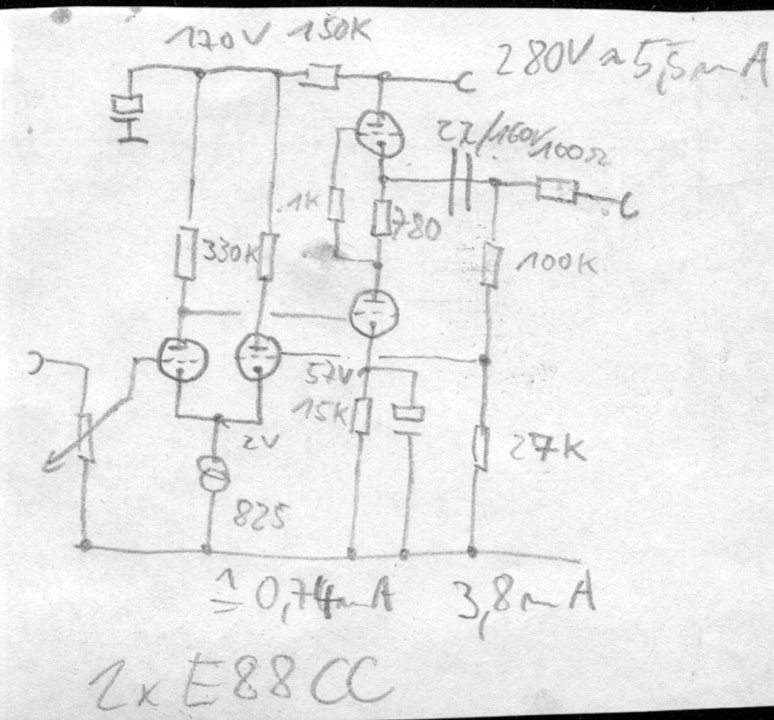 170V 150K
280V ≈ 5,5mA
22/160V 100Ω
1K
780
330K
100K
57V
15K
2V
27K
825
≙ 0,74mA 3,8mA
2x E88CC